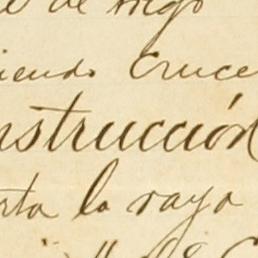 de riego
iendo cruce
nstrucción
rta la raya